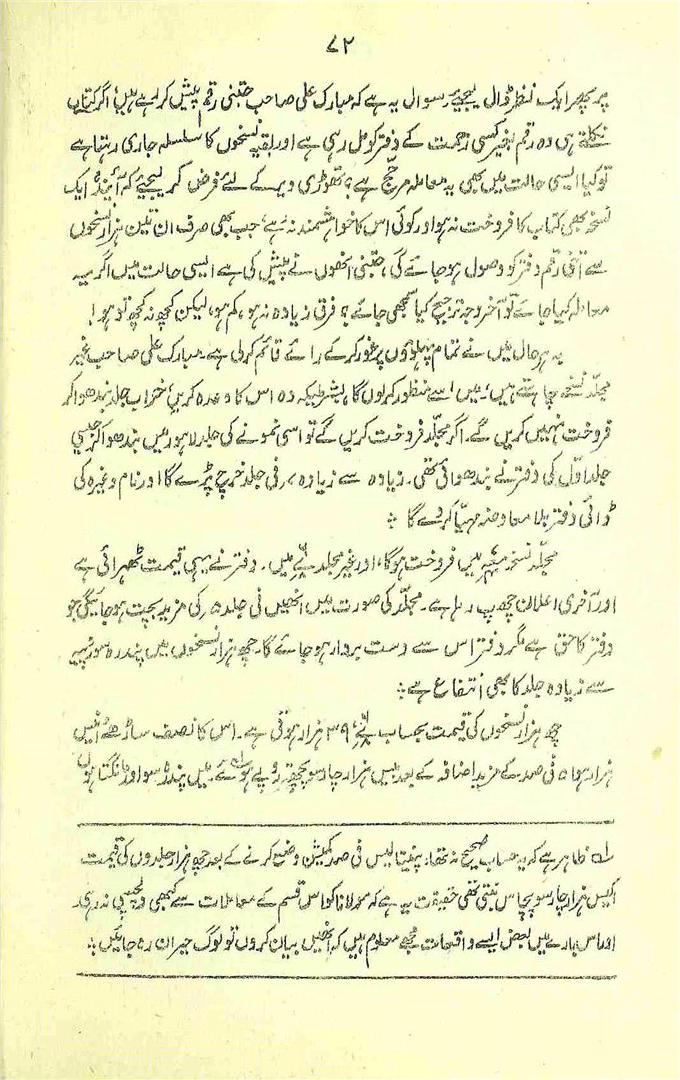 ۸۲
پر پھر ایک نظر ڈال لیجیے۔ سوال یہ ہے کہ مبارک علی صاحب جتنی رقم پیش کر رہے ہیں، اگر کتاب
نکلتے ہی وہ رقم بغیر کسی زحمت کے دفتر کو مل رہی ہے اور بقیہ نسخوں کا سلسلہ جاری رہتا ہے
تو کیا ایسی حالت میں بھی یہ معاملہ مرجّح ہے؟ تھوڑی دیر کے لئے فرض کر لیجیے کہ آئندہ ایک
نسخہ بھی کتاب کا فروخت نہ ہو اور کوئی اس کا خواہشمند نہ رہے، جب بھی صرف ان تین ہزار نسخوں
سے اتنی رقم دفتر کو وصول ہو جائے گی، جتنی انھوں نے پیش کی ہے ایسی حالت میں اگر یہ
معاملہ کیا جائے تو آخر وجہ ترجیح کیا سمجھی جائے؟ فرق زیادہ نہ ہو، کم ہو، لیکن کچھ نہ کچھ تو ہو!
بہر حال میں نے تمام پہلوؤں پر غور کر کے رائے قائم کر لی ہے۔ مبارک علی صاحب غیر
مجلّد نسخہ چاہتے ہیں۔ میں اسے منظور کر لوں گا بشرطیکہ وہ اس کا وعدہ کریں، خراب جلد بندھوا کر
فروخت نہیں کریں گے۔ اگر مجلّد فروخت کریں گے تو اسی نمونے کی جلد لاہور میں بندھوا کر جیسی
جلد اوّل کی دفتر نے بندھوائی تھی۔ زیادہ سے زیادہ ؍ فی جلد خرچ پڑے گا اور نام وغیرہ کی
ڈائی دفتر بلا معاوضہ مہیّا کر دے گا ؞
مجلّد نسخہ میں فروخت ہوگا، اور غیر مجلد میں۔ دفتر نے یہی قیمت ٹھہرائی ہے
اور آخری اعلان چھپ رہا ہے۔ مجلّد کی صورت میں انھیں فی جلد ۵؍ کی مزید بچت ہو جائیگی جو
دفتر کا حق ہے مگر دفتر اس سے دست بردار ہو جائے گا۔ چھ ہزار نسخوں میں پندرہ سو روپیہ
سے زیادہ جلد کا بھی انتفاع ہے ؞
چھ ہزار نسخوں کی قیمت بحساب ۳۹ ہزار ہوتی ہے۔ اس کا نصف ساڑھے انیس
ہزار ہوا۔ ۵ فی صد کے مزید اضافہ کے بعد بیس ہزار چار سو پچھتر روپے ہوئے۔ میں پندرہ سو اور مانگتا ہوں
لہ ظاہر ہے کہ یہ حساب صحیح نہ تھا۔ پینتالیس فی صد کمیشن وضع کرنے کے بعد چھ ہزار جلدوں کی قیمت
اکیس ہزار چار سو پچاس بنتی تھی حقیقت یہ ہے کہ مولانا کو اس قسم کے معاملات سے کبھی دلچسپی نہ رہی
اور اس بارے میں بعض ایسے واقعات مجھے معلوم ہیں کہ انھیں بیان کروں تو لوگ حیران رہ جائیں ؞